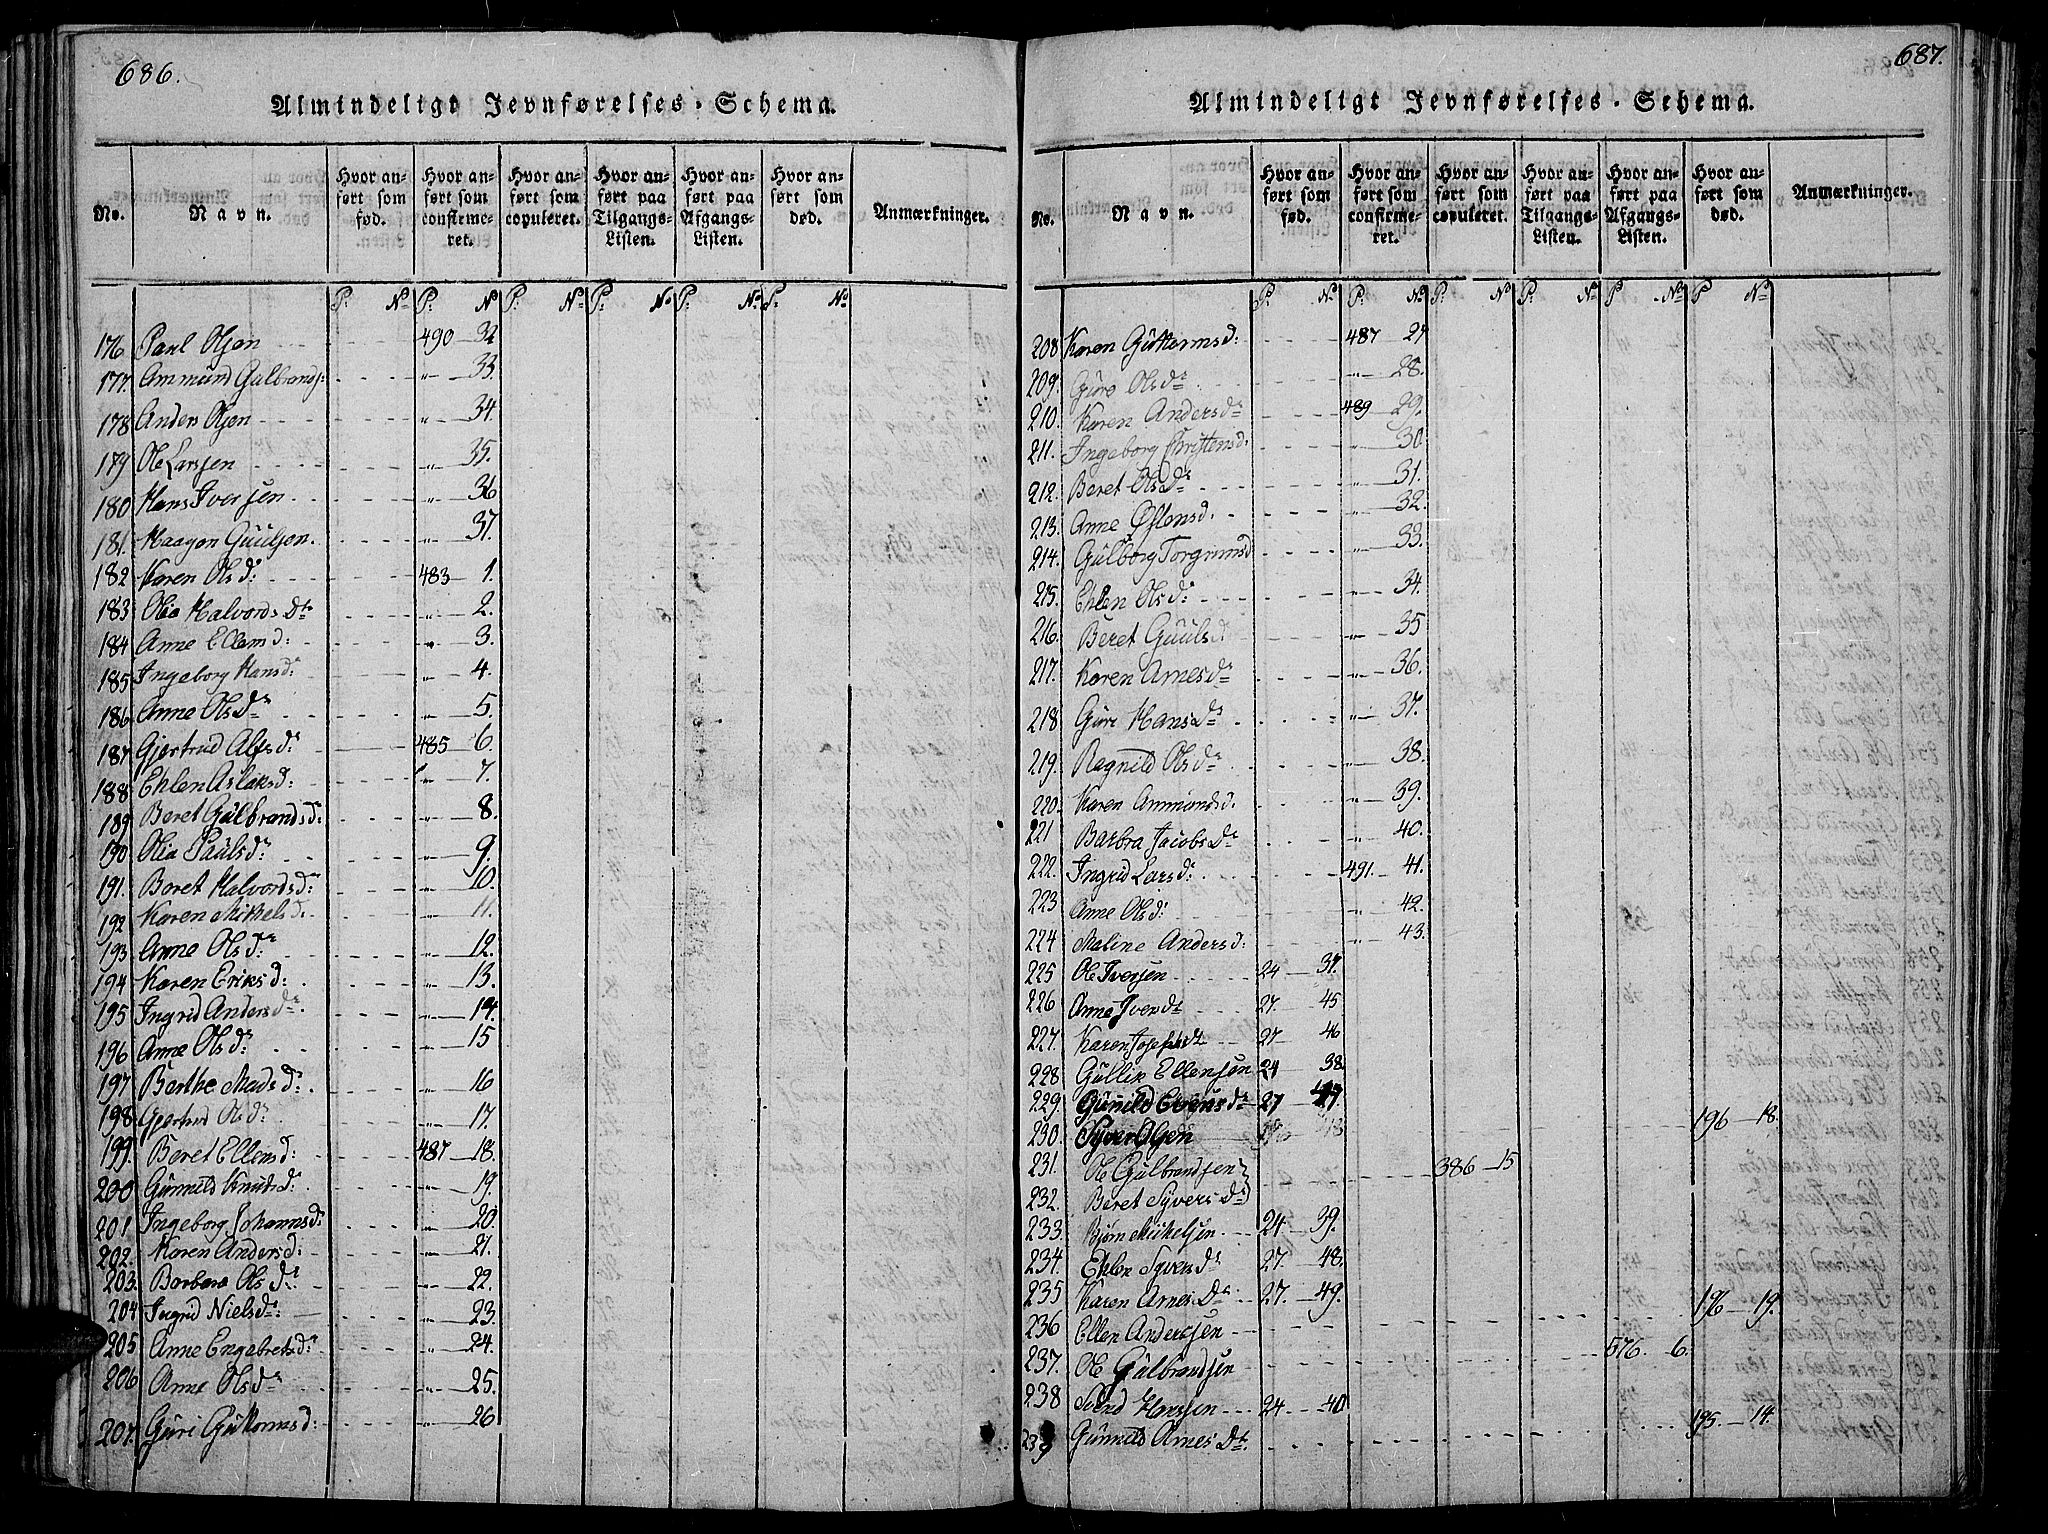 686.
Almindeligt Jevnførelses-Schema.
No. Navn. Hvor anført som fød. Hvor anført som confirmeret. Hvor anført som copuleret. Hvor anført paa Tilgangs-Listen. Hvor anført paa Afgangs-Listen. Hvor anført som død. Anmærkninger.
P: No P: No P: No P: No P: No P: No
176 Paul Olsen 490 32
177. Ammund Gulbrands: " 33.
178 Anders Olsen " 34.
179 Ole Larssen " 35.
180 Hans Iversen " 36
181. Haagen Guulsen. " 37.
182 Karen Olsd: 483 1.
183 Olia Halvordsdt " 2.
184 Anne Ellensd: " 3.
185 Ingeborg Hansdr " 4
186 Anne Olsdr " 5.
187 Gjertrud Alfsdr 485 6.
188 Ehlen Aslaksd: " 7.
189 Beret Gulbrandsdr " 8.
190 Olia Paulsdr " 9.
191. Beret Halvordsdr " 10.
192 Karen Mikkelsd. " 11.
193 Anne Olsdr " 12.
194 Karen Eriksd: " 13.
195 Ingrid Andersdr " 14.
196 Anne Olsdr " 15
197 Berthe Madsdr " 16
198 Gjertrud Olsdr " 17.
199. Beret Ellensd: 487 18.
200 Gunnild Knudsdr " 19.
201 Ingeborg Johannsdr " 20
202. Karen Andersd: " 21.
203. Barbara Olsdr " 22.
204 Ingrid Nielsdr " 23.
205 Anne Engebretsdr " 24.
206 Anne Olsdr " 25.
207. Guri Guttormsd: " 26
687.
Almindeligt Jevnførelses-Schema.
No. Navn. Hvor anført som fød. Hvor anført som confirmeret. Hvor anført som copuleret. Hvor anført paa Tilgangs-Listen. Hvor anført paa Afgangs-Listen. Hvor anført som død. Anmærkninger.
P. No P: No P: No P: No P No P No
208 Karen Guttormsd: 487 27
209. Guro Olsdr " 28.
210. Karen Andersdr 489 29.
211. Ingeborg Christensd. " 30
212. Beret Olsdr " 31.
213. Anne Østensd. " 32.
214. Gulborg Torgrimsd " 33.
215. Ehlen Olsdr " 34.
216. Beret Guulsd " 35
217. Karen Arnesdr " 36.
218 Guri Hansdr " 37.
219. Ragnild Olsdr " 38.
220. Karen Ammundsd. " 39.
221 Barbra Jacobsdr " 40.
222. Ingrid Larsdr 491. 41.
223 Anne Olsdr " 42.
224 Maline Andersd: " 43.
225 Ole Iversen 24 37.
226 Anne Iversdt 27. 45
227. Karen Josephsdt 27 46
228 Gullik Ellensen 24 38
229. Gunild Evensdr 27 47
230. Syver Olsen 196 18.
231. Ole Gulbrandsen 386 15
232. Beret Syversdr
233. Bjørn Mickelsen 24 39.
234. Ehlen Syversdr 27. 48.
235 Karen Arnesdr 27. 49.
236 Ellen Andersen 196 19.
237. Ole Gulbrandsen 576 6.
238 Svend Hanssen 24 40
239 Gunnild Arnesdt 195. 14.